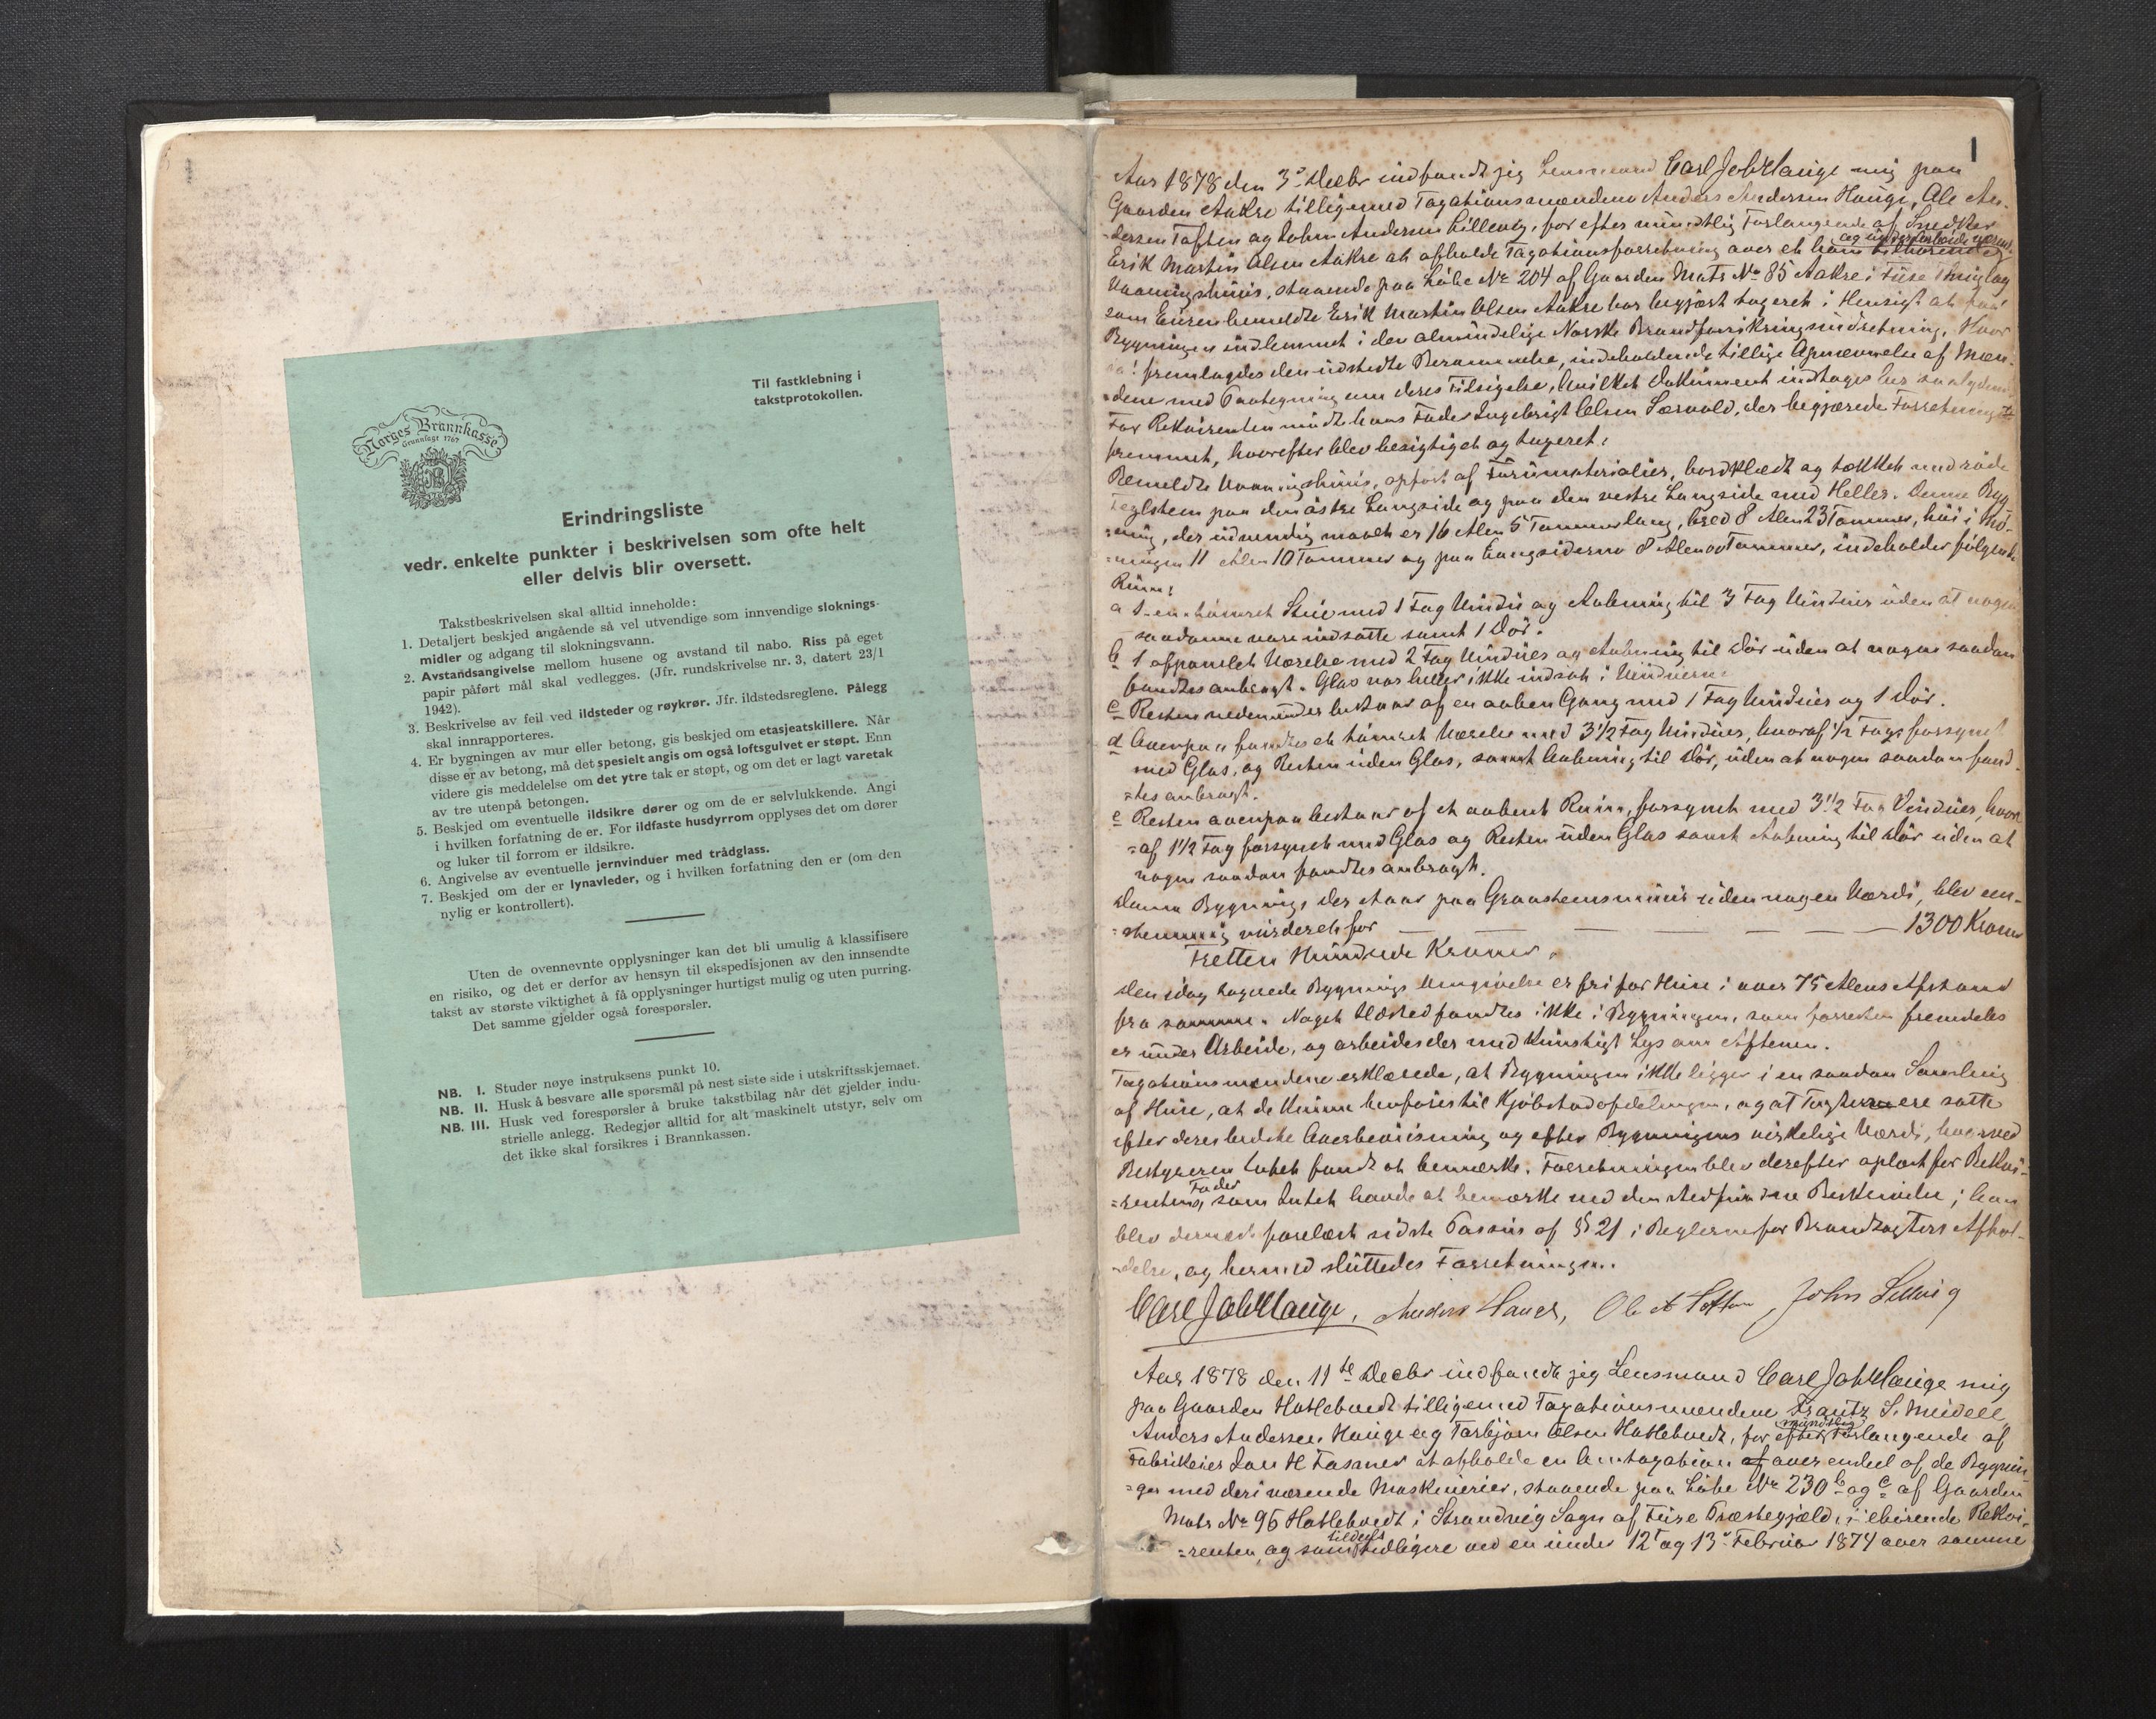 Til fastklebning i
takstprotokollen.
Norges Brannkasse
Grunnlagt 1767
Erindringsliste
vedr. enkelte punkter i beskrivelsen som ofte helt
eller delvis blir oversett.
Takstbeskrivelsen skal alltid inneholde:
1. Detaljert beskjed angående så vel utvendige som innvendige sloknings-
midler og adgang til slokningsvann.
2. Avstandsangivelse mellom husene og avstand til nabo. Riss på eget
papir påført mål skal vedlegges. (Jfr. rundskrivelse nr. 3, datert 23/1
1942).
3. Beskrivelse av feil ved ildsteder og røykrør. Jfr. ildstedsreglene. Pålegg
skal innrapporteres.
4. Er bygningen av mur eller betong, gis beskjed om etasjeatskillere. Når
disse er av betong, må det spesielt angis om også loftsgulvet er støpt. Enn
videre gis meddelelse om det ytre tak er støpt, og om det er lagt varetak
av tre utenpå betongen.
5. Beskjed om eventuelle ildsikre dører og om de er selvlukkende. Angi
i hvilken forfatning de er. For ildfaste husdyrrom opplyses det om dører
og luker til forrom er ildsikre.
6. Angivelse av eventuelle jernvinduer med trådglass.
7. Beskjed om der er lynavleder, og i hvilken forfatning den er (om den
nylig er kontrollert).
Uten de ovennevnte opplysninger kan det bli umulig å klassifisere
en risiko, og det er derfor av hensyn til ekspedisjonen av den innsendte
takst av største viktighet å få opplysninger hurtigst mulig og uten purring.
Det samme gjelder også forespørsler.
NB. I. Studer nøye instruksens punkt 10.
NB. II. Husk å besvare alle spørsmål på nest siste side i utskriftsskjemaet.
NB. III. Husk ved forespørsler å bruke takstbilag når det gjelder indu-
strielle anlegg. Redegjør alltid for alt maskinelt utstyr, selv om
det ikke skal forsikres i Brannkassen.
1
Aar 1878 den 3die Decbr indfandt jeg Lensmand Carl Joh Hauge mig paa
Gaarden Aakre tilligemed Taxationsmændene Anders Andersen Hauge, Ole An-
-dersen Toften og John Andersen Lillevig, for efter mundtlig Forlangende af Snedker
og under Arbeide værende
Erik Martin Olsen Aakre at afholde Taxationsforretning over et ham tilhørende
Vaaningshuus, staaende paa Løbe No 204 af Gaarden Matr No 85 Aakre i Fuse Thinglag
som Eieren bemeldte Erik Martin Olsen Aakre har begjært taxeret i Hensigt at faa
Bygningen indlemmet i den almindelige Norske Brandforsikringsindretning. Hvor
da! fremlagdes den udstedte Berammelse, indeholdende tillige Opnævnelse af Mæn-
-dene med Paategning om deres Tilsigelse, hvilket Dokument indtages her saalydende
For Rekvirenten mødte hans Fader Ingebrigt Olsen Sævold, der begjærede Forretningen
fremmet, hvorefter blev besigtiget og taxeret:
Bemeldte Vaaningshuus, opført af Furumaterialier, bordklædt og tækket med røde
Teglsteen paa den østre Langside og paa den vestre Langside med Heller. Denne Byg-
=ning, der udvendig maalt er 16 Alen 5 Tommer lang, bred 8 Alen 23 Tommer, høi i Mø-
=ningen 11 Alen 10 Tommer og paa Langsiderne 8 Alen Tommer, indeholder følgende
Rum:
a 1 en tømret Stue med 1 Fag Vindu og Aabning til 3 Fag Vinduer uden at nogen
saadanne vare indsatte samt 1 Dør.
b 1 afpanelet Værelse med 2 Fag Vinduer og Aabning til Dør uden at nogen saadan
fandtes anbragt. Glas var heller ikke indsat i Vinduerne.
c Resten nedenunder bestaar af en aaben Gang med 1 Fag Vinduer og 1 Dør.
d Ovenpaa fandtes et tømret Værelse med 3 1/2 Fag Vinduer, hvoraf 1/2 Fag forsynet
med Glas, og Resten uden Glas, samt Aabning til Dør, uden at nogen saadan fand-
=tes anbragt.
e Resten ovenpaa bestaar af et aabent Rum, forsynet med 3 1/2 Fag Vinduer, hvor
=af 1 1/2 Fag forsynet med Glas og Resten uden Glas samt Aabning til Dør uden at
nogen saadan fandtes anbragt.
Denne Bygning, der staar paa Graasteensmuur uden nogen Værdi, blev een-
=stemmig vurderet for — — — — — — 1300 Kroner
Tretten Hundrede Kroner.
Den idag taxerede Bygnings Omgivelse er fri for Huse i over 75 Alens Afstand
fra samme. Noget Ildsted fandtes ikke i Bygningen, som forresten fremdeles
er under Arbeide, og arbeides der med kunstigt Lys om Aftenen.
Taxationsmændene erklærede, at Bygningen ikke ligger i en saadan Samling
af Huse, at de kunne henføres til Kjøbstadafdelingen, og at Taxterne ere satte
efter deres bedste Overbeviisning og efter Bygningens virkelige Værdi, hvorved
Bestyreren Intet fandt at bemærke. Forretningen blev derefter oplæst for Rekvi-
Fader
=rentens, som Intet havde at bemærke med den stedfundne Beskrivelse; han
blev dernæst forelæst sidste Passus af § 21 i Reglerne for Brandtaxters Afhol-
-delse, og hermed sluttedes Forretningen.
Carl Joh Hauge, Anders Hauge, Ole A Toften, John Lillevig
Aar 1878 den 11te Decbr indfandt jeg Lensmand Carl Joh Hauge mig
paa Gaarden Hatlebvedt tilligemed Taxationsmændene Frantz S. Meidell,
mundtlig
Anders Andersen Hauge og Torbjørn Olsen Hatlebvedt, for efter Forlangende af
Fabrikeier Jan H Fasmer at afholde en Omtaxation af over endeel af de Bygnin-
=ger med deri værende Maskinerier, staaende paa Løbe No 230 b og c af Gaarden
Matr No 96 Hatlebvedt i Strandvig Sogn af Fuse Præstegjæld, tilhørende Rekvi-
tildeels
=renten, og som tidligere ved en under 12te og 13de Februar 1874 over samme